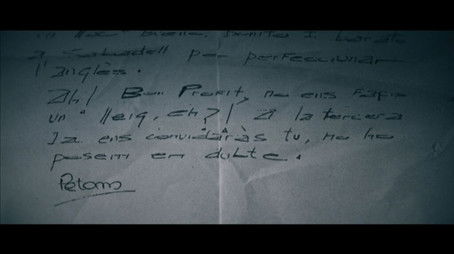 bonito i barato
a Sabadell per perfeccionar
l'anglès.
Ah! Bon Profit, no ens facis
un "lleig, eh?! A la tercera
Ja ens convidaràs tu, no ho
posem en dubte.
Petons